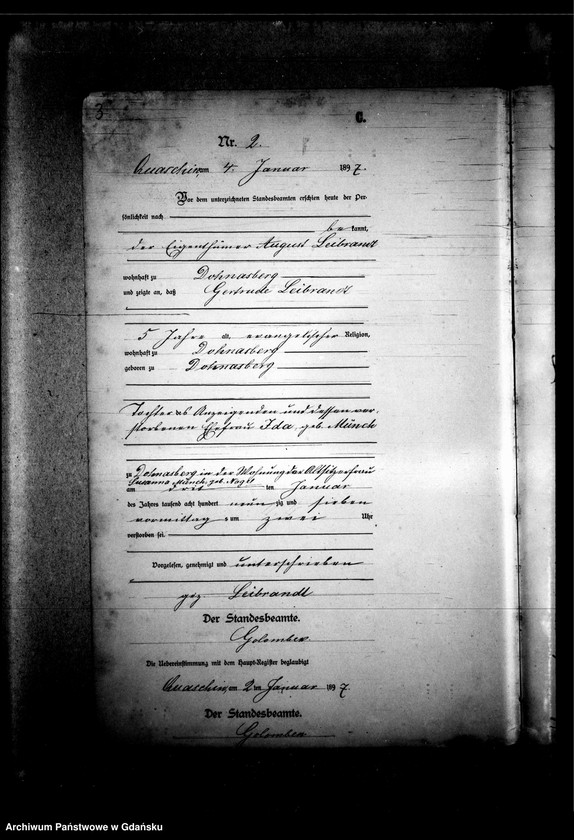 3
C.
Nr. 2.
Quaschin, am 4. Januar 1897.
Vor dem unterzeichneten Standesbeamten erschien heute der Per-
sönlichkeit nach
be kannt,
der Eigenthümer August Leibrandt
wohnhaft zu Dohnasberg
und zeigte an, daß Gertrude Leibrandt
5 Jahre alt, evangelischer Religion,
wohnhaft zu Dohnasberg
geboren zu Dohnasberg
Tochter des Anzeigenden und dessen ver-
storbenen Ehefrau Ida, geb. Münch
zu Dohnasberg in der Wohnung der Altsitzerfrau
Susanna Münch, geb.
am drit ten Januar
des Jahres tausend acht hundert neun zig und sieben
vormittags um zwei Uhr
verstorben sei.
Vorgelesen, genehmigt und unterschrieben
gez. Leibrandt
Der Standesbeamte.
Die Uebereinstimmung mit dem Haupt-Register beglaubigt
Quaschin, am ten Januar 1897.
Der Standesbeamte.
Archiwum Państwowe w Gdańsku